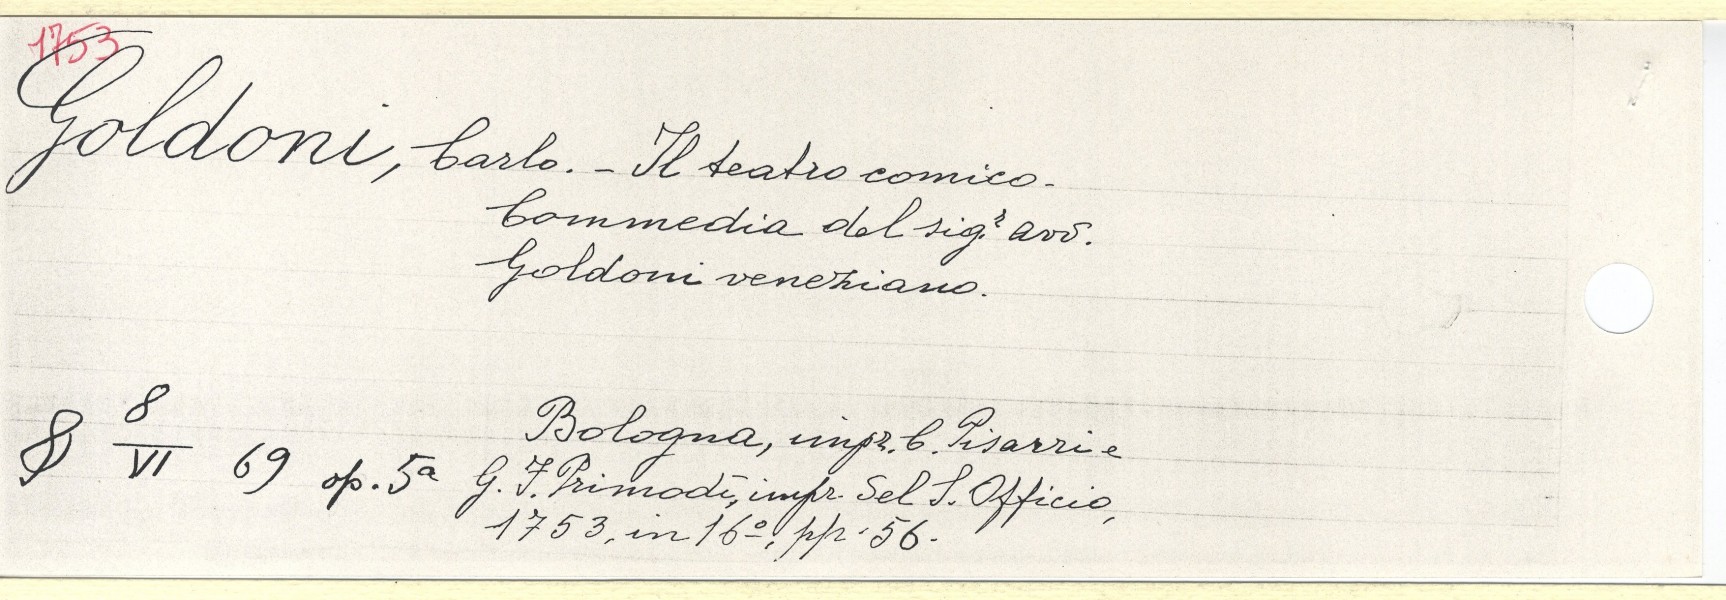 1753
Goldoni, Carlo. - Il teatro comico.
Commedia del sig.r avv.
Goldoni veneziano.
8
VI 69 op. 5a
Bologna, impr. C. Pisarri e
G. F. Primodì, impr. del S. Officio,
1753, in 16º, pp. 56.